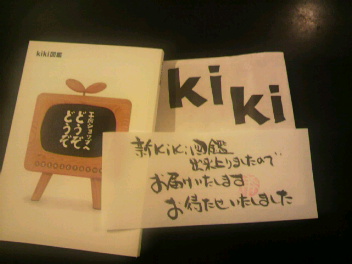 kiki図鑑
王様ショップへ
どうぞ
どうぞ
ki
ki
新kiki図鑑
出来上りましたので
お届けいたします
お待たせいたしました